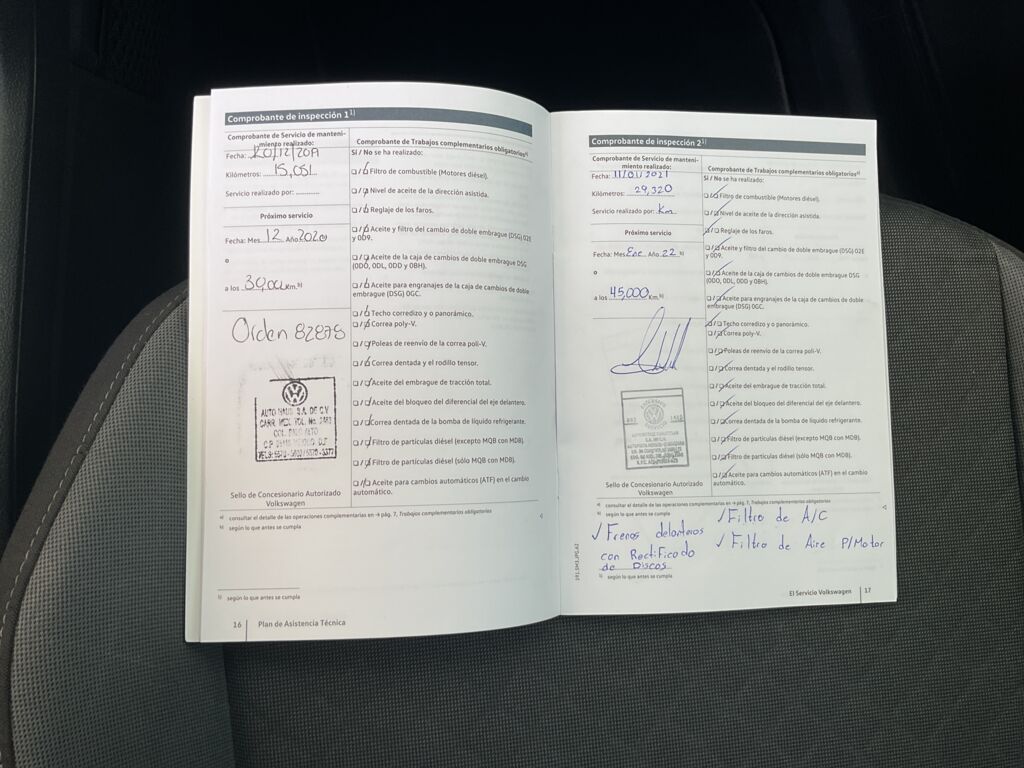 Comprobante de inspección 1 1)
Comprobante de Servicio de manteni-
miento realizado:
Fecha: 10/12/2019
Kilómetros: 15,051
Servicio realizado por:
Próximo servicio
Fecha: Mes 12 Año 2020
o
a los 30,000 Km. b)
Orden 82878
AUTO HAUS S.A. DE C.V
CARR. MEX. TOL. No.
COL. PALO ALTO
C.P. MEXICO D.F
Sello de Concesionario Autorizado
Volkswagen
Comprobante de Trabajos complementarios obligatorios a)
Sí / No se ha realizado:
Filtro de combustible (Motores diésel).
Nivel de aceite de la dirección asistida.
Reglaje de los faros.
Aceite y filtro del cambio de doble embrague (DSG) 02E
y 0D9.
Aceite de la caja de cambios de doble embrague DSG
(0D0, 0DL, 0DD y 0BH).
Aceite para engranajes de la caja de cambios de doble
embrague (DSG) 0GC.
Techo corredizo y o panorámico.
Correa poly-V.
Poleas de reenvio de la correa poli-V.
Correa dentada y el rodillo tensor.
Aceite del embrague de tracción total.
Aceite del bloqueo del diferencial del eje delantero.
Correa dentada de la bomba de líquido refrigerante.
Filtro de partículas diésel (excepto MQB con MDB).
Filtro de partículas diésel (sólo MQB con MDB).
Aceite para cambios automáticos (ATF) en el cambio
automático.
a) consultar el detalle de las operaciones complementarias en → pág. 7, Trabajos complementarios obligatorios
b) según lo que antes se cumpla
1) según lo que antes se cumpla
16 Plan de Asistencia Técnica
Comprobante de inspección 2 1)
Comprobante de Servicio de manteni-
miento realizado:
Fecha: 11/01/2021
Kilómetros: 29,320
Servicio realizado por: Km
Próximo servicio
Fecha: Mes Ene Año 22 b)
o
a los 45,000 Km. b)
Sello de Concesionario Autorizado
Volkswagen
Comprobante de Trabajos complementarios obligatorios a)
Sí / No se ha realizado:
Filtro de combustible (Motores diésel).
Nivel de aceite de la dirección asistida.
Reglaje de los faros.
Aceite y filtro del cambio de doble embrague (DSG) 02E
y 0D9.
Aceite de la caja de cambios de doble embrague DSG
(0D0, 0DL, 0DD y 0BH).
Aceite para engranajes de la caja de cambios de doble
embrague (DSG) 0GC.
Techo corredizo y o panorámico.
Correa poly-V.
Poleas de reenvio de la correa poli-V.
Correa dentada y el rodillo tensor.
Aceite del embrague de tracción total.
Aceite del bloqueo del diferencial del eje delantero.
Correa dentada de la bomba de líquido refrigerante.
Filtro de partículas diésel (excepto MQB con MDB).
Filtro de partículas diésel (sólo MQB con MDB).
Aceite para cambios automáticos (ATF) en el cambio
automático.
a) consultar el detalle de las operaciones complementarias en → pág. 7, Trabajos complementarios obligatorios
b) según lo que antes se cumpla
✓ Frenos delanteros
con Rectificado
de Discos
✓ Filtro de A/C
✓ Filtro de Aire P/Motor
1) según lo que antes se cumpla
El Servicio Volkswagen 17